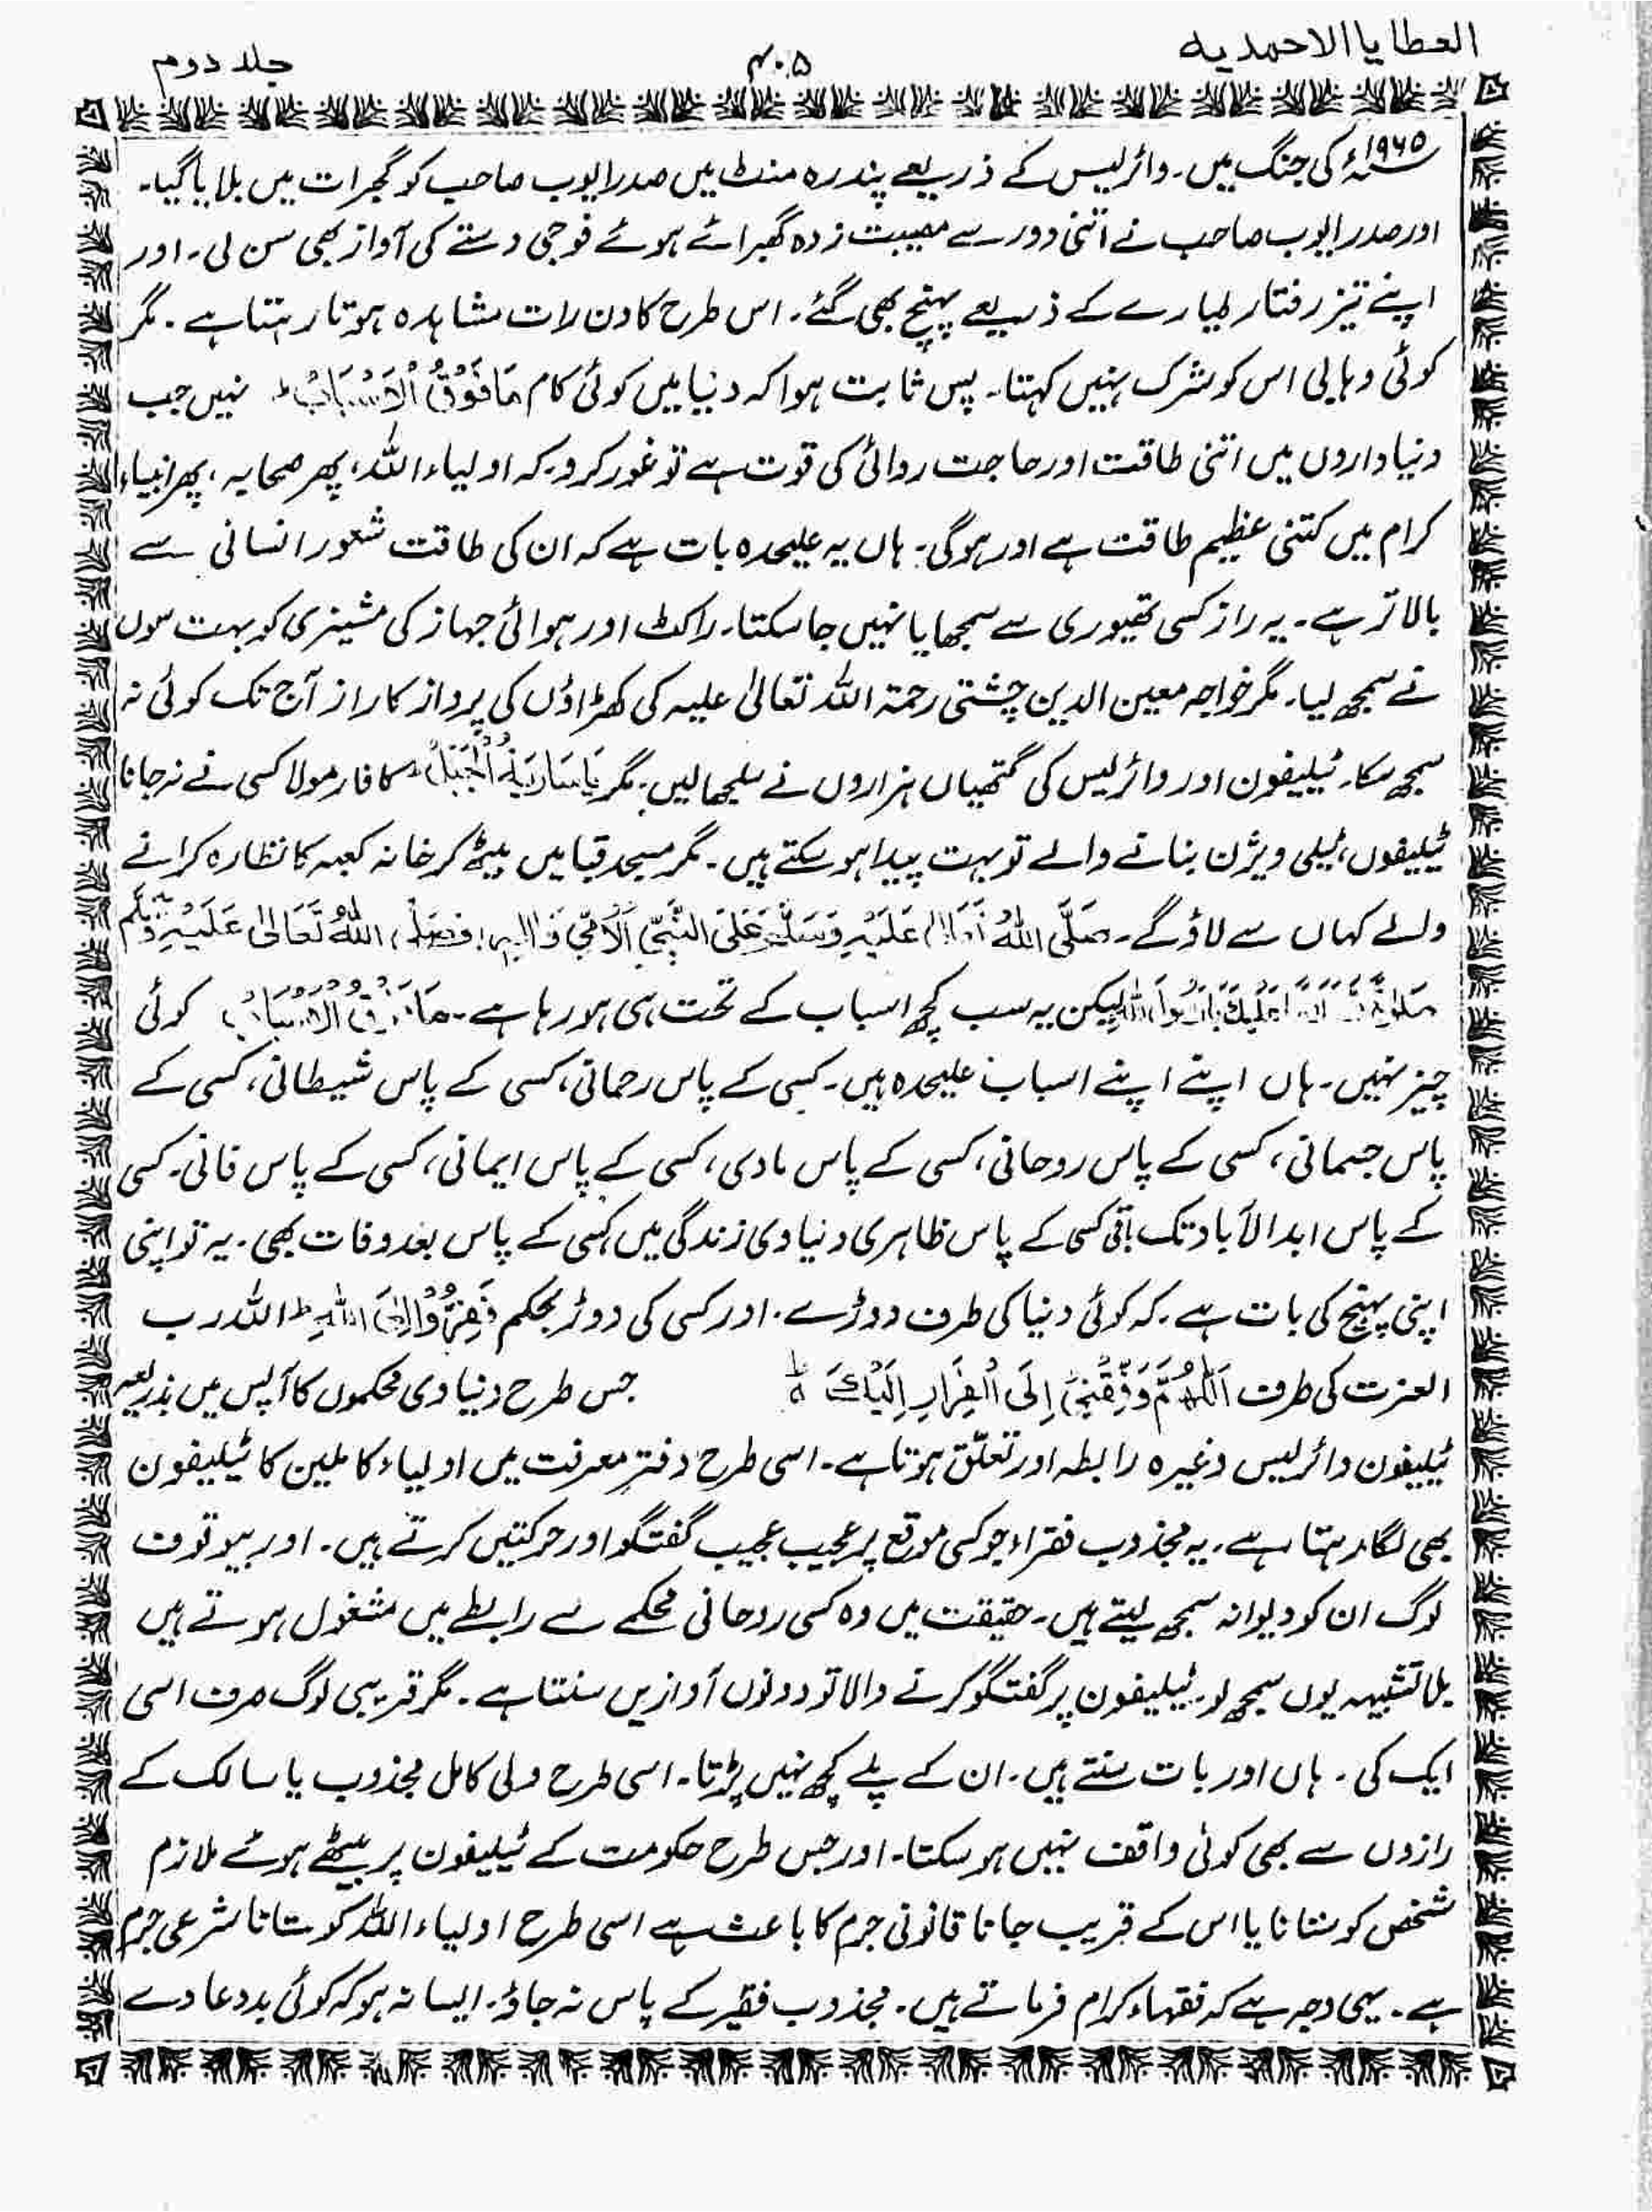 العطایا الاحمدیہ
۴۰۵
جلد دوم
۱۹۶۵ء کی جنگ میں۔ وائرلیس کے ذریعے پندرہ منٹ میں صدر ایوب صاحب کو گجرات میں بلایا گیا۔
اور صدر ایوب صاحب نے اتنی دور سے مصیبت زدہ گھبرائے ہوئے فوجی دستے کی آواز بھی سن لی۔ اور
اپنے تیز رفتار طیارے کے ذریعے پہنچ بھی گئے۔ اس طرح کا دن رات مشاہدہ ہوتا رہتا ہے۔ مگر
کوئی وہابی اس کو شرک نہیں کہتا۔ پس ثابت ہوا کہ دنیا میں کوئی کام مَا فَوْقُ الْاَسْبَابْ نہیں جب
دنیا داروں میں اتنی طاقت اور حاجت روائی کی قوت ہے تو غور کرو۔ کہ اولیاء اللہ، پھر صحابہ، پھر انبیاء
کرام میں کتنی عظیم طاقت ہے اور ہوگی۔ ہاں یہ علیحدہ بات ہے کہ ان کی طاقت شعور انسانی سے
بالاتر ہے۔ یہ راز کسی تھیوری سے سمجھایا نہیں جا سکتا۔ راکٹ اور ہوائی جہاز کی مشینری کو بہت سوں
نے سمجھ لیا۔ مگر خواجہ معین الدین چشتی رحمۃ اللہ تعالیٰ علیہ کی کھڑاؤں کی پرواز کا راز آج تک کوئی نہ
سمجھ سکا۔ ٹیلیفون اور وائرلیس کی گتھیاں ہزاروں نے سلجھا لیں۔ مگر یَا سَارِیَۃُ الْجَبَلْ کا فارمولا کسی نے نہ جانا
ٹیلیفوں، ٹیلی ویژن بنانے والے تو بہت پیدا ہو سکتے ہیں۔ مگر مسجد قبا میں بیٹھ کر خانہ کعبہ کا نظارہ کرانے
والے کہاں سے لاؤ گے۔ صَلَّی اللّٰہُ تَعَالٰی عَلَیْہِ وَسَلَّمَ عَلَی النَّبِیِّ الْاُمِّیِّ وَاٰلِہٖ صَلَّی اللّٰہُ تَعَالٰی عَلَیْہِ وَسَلَّم
صَلوٰۃً وَّسَلَامًا عَلَیْکَ یَا رَسُوْلَ اللّٰہِ لیکن یہ سب کچھ اسباب کے تحت ہی ہو رہا ہے۔ مَا فَوْقَ الْاَسْبَابْ کوئی
چیز نہیں۔ ہاں اپنے اپنے اسباب علیحدہ ہیں۔ کسی کے پاس رحمانی، کسی کے پاس شیطانی، کسی کے
پاس جسمانی، کسی کے پاس روحانی، کسی کے پاس مادی، کسی کے پاس ایمانی، کسی کے پاس فانی۔ کسی
کے پاس ابد الآباد تک باقی کسی کے پاس ظاہری دنیاوی زندگی میں کسی کے پاس بعد وفات بھی۔ یہ تو اپنی
اپنی پہنچ کی بات ہے۔ کہ کوئی دنیا کی طرف دوڑے۔ اور کسی کی دوڑ بحکم فَفِرُّوْا اِلَی اللّٰہِ ط اللہ رب
العزت کی طرف اَللّٰہُمَّ وَفِّقْنِیْ اِلَی الْفِرَارِ اِلَیْکَ ط جس طرح دنیاوی محکموں کا آپس میں بذریعہ
ٹیلیفون وائرلیس وغیرہ رابطہ اور تعلّق ہوتا ہے۔ اسی طرح دفترِ معرفت میں اولیاء کاملین کا ٹیلیفون
بھی لگا رہتا ہے۔ یہ مجذوب فقراء جو کسی موقع پر عجیب عجیب گفتگو اور حرکتیں کرتے ہیں۔ اور بیوقوف
لوگ ان کو دیوانہ سمجھ لیتے ہیں۔ حقیقت میں وہ کسی روحانی محکمے سے رابطے میں مشغول ہوتے ہیں
بلا تشبیہ یوں سمجھ لو۔ ٹیلیفون پر گفتگو کرنے والا تو دونوں آوازیں سنتا ہے۔ مگر قریبی لوگ صرف اسی
ایک کی۔ ہاں اور بات سنتے ہیں۔ ان کے پلے کچھ نہیں پڑتا۔ اسی طرح ولی کامل مجذوب یا سالک کے
رازوں سے بھی کوئی واقف نہیں ہو سکتا۔ اور جس طرح حکومت کے ٹیلیفون پر بیٹھے ہوئے ملازم
شخص کو ستانا یا اس کے قریب جانا قانونی جرم کا باعث ہے اسی طرح اولیاء اللہ کو ستانا شرعی جرم
ہے۔ یہی وجہ ہے کہ فقہاء کرام فرماتے ہیں۔ مجذوب فقیر کے پاس نہ جاؤ۔ ایسا نہ ہو کہ کوئی بددعا دے